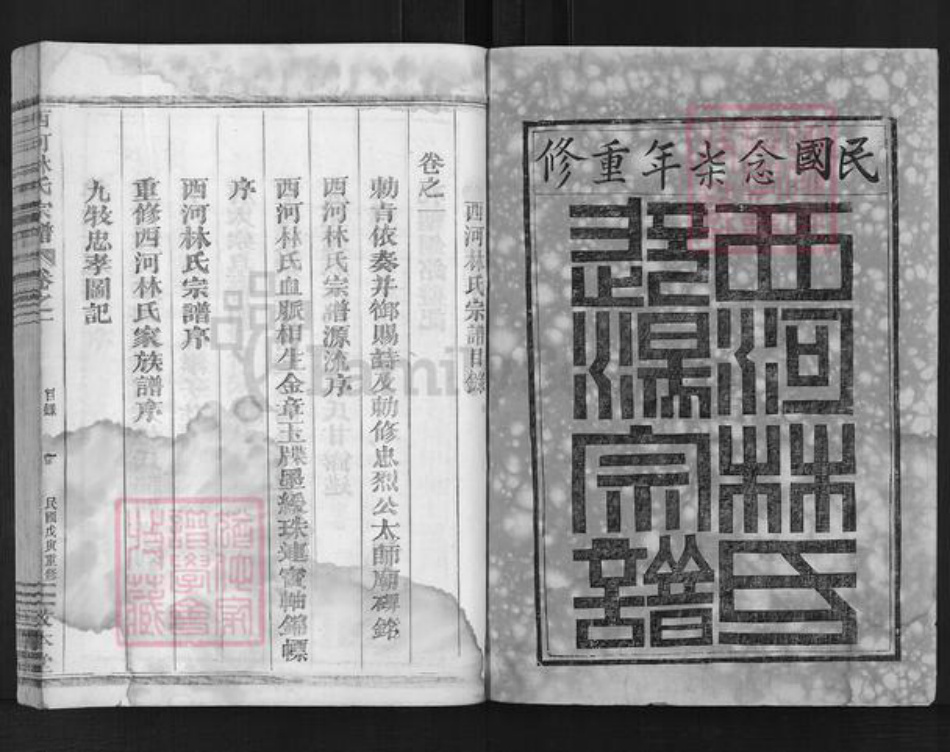 民國念柒年重修
西河林氏
宗譜
西河林氏宗譜目錄
卷之一
勅旨依奏并御賜詩及勅修忠烈公太師廟碑銘
西河林氏宗譜源流序
西河林氏血脈相生金章玉牒墨綬珠連寶軸錦幖
序
西河林氏宗譜序
重修西河林氏家族譜序
九牧忠孝圖記
西河林氏宗譜 卷之一 目錄 民國戊寅重修